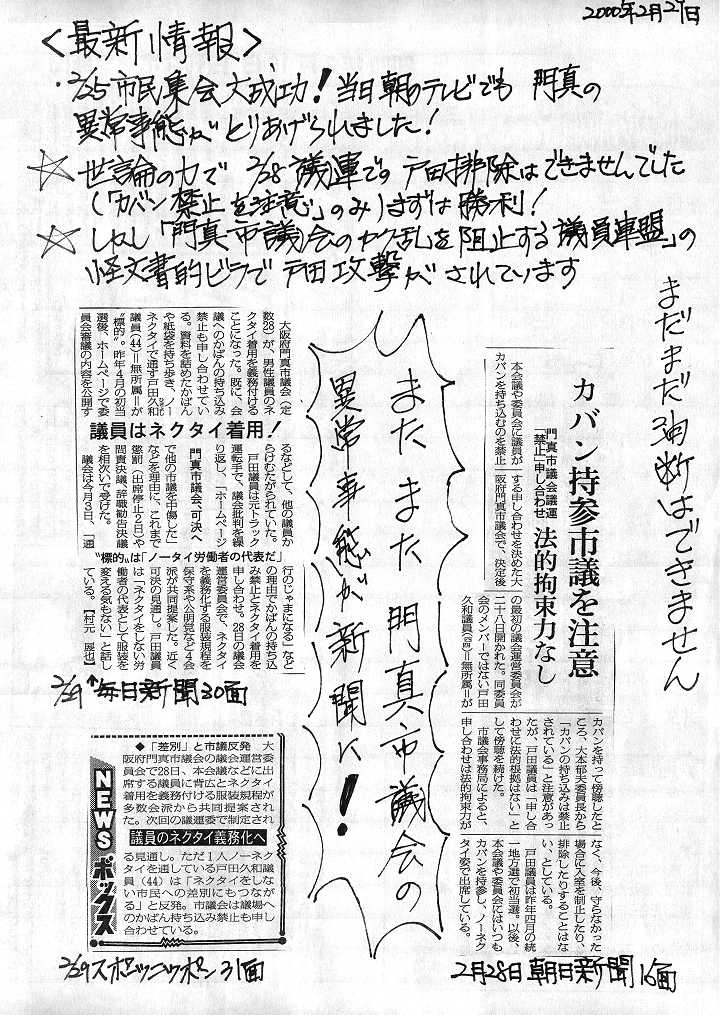 2000年2月29日
<最新情報>
・2/25市民集会大成功！当日朝のテレビでも 門真の
異常事態がとりあげられました！
☆ 世論の力で 2/28議運での 戸田排除はできませんでした
(「カバン禁止を注意」のみ)まずは勝利！
☆ しかし「門真市議会の
を阻止する議員連盟」の
怪文書的ビラで 戸田攻撃がされています
まだまだ油断はできません
またまた門真市議会の
異常事態が新聞に！
カバン持参市議を注意
法的拘束力なし
門真市議会議運
「禁止」申し合わせ
本会議や委員会に議員が
カバンを持ち込むのを禁止
する申し合わせを決めた大
阪府門真市議会で、決定後
の最初の議会運営委員会が
二十八日開かれた。同委員
会のメンバーではない戸田
久和議員(四四)=無所属=が
カバンを持って傍聴したと
ころ、大本郁夫委員長から
「カバンの持ち込みは禁止
されている」と注意があっ
たが、戸田議員は「申し合
わせに法的根拠はない」と
して傍聴を続けた。
市議会事務局によると、
申し合わせは法的拘束力が
なく、今後、守らなかった
場合に入室を制止したり、
排除したりすることはな
い、としている。
戸田議員は昨年四月の統
一地方選で初当選。以後、
本会議や委員会にはいつも
カバンを持参し、ノーネク
タイ姿で出席している。
2月28日 朝日新聞 16面
大阪府門真市議会(定
数28)が、男性議員のネ
クタイ着用を義務付ける
ことになった。既に、会
議へのかばんの持ち込み
禁止も申し合わせてい
る。資料を詰めたかばん
や紙袋を持ち歩き、ノー
ネクタイで通す戸田久和
議員(44)=無所属=が
“標的”。昨年4月の初当
選後、ホームページで委
員会審議の内容を公開す
議員はネクタイ着用！
門真市議会、可決へ
るなどして、他の議員か
らけむたがられていた。
戸田議員は元トラック
運転手で、議会批判を繰
り返し、「ホームページ
で他の市議を中傷した」
などを理由に、これまで
懲罰(出席停止2日)や
問責決議、辞職勧告決議
を相次いで受けた。
議会は今月3日、「通
“標的”は「ノータイ労働者の代表だ」
行のじゃまになる」など
の理由でかばんの持ち込
み禁止とネクタイ着用を
申し合わせ。28日の議会
運営委員会で、ネクタイ
を義務化する服装規程を
保守系や公明党など4会
派が共同提案した。近く
可決の見通し。戸田議員
は「ネクタイをしない労
働者の代表として服装を
変える気もない」と話し
ている。【村元 展也】
2/29↑毎日新聞30面
NEWSボックス
◆「差別」と市議反発 大
阪府門真市議会の議会運営委
員会で28日、本会議などに出
席する議員に背広とネクタイ
着用を義務付ける服装規程が
多数会派から共同提案され
た。次回の議運委で制定され
議員のネクタイ義務化へ
る見通し。ただ1人ノーネク
タイを通している戸田久和議
員(44)は「ネクタイをしな
い市民への差別にもつなが
る」と反発。市議会は議場へ
のかばん持ち込み禁止も申し
合わせている。
2/29スポニッニッポン31面